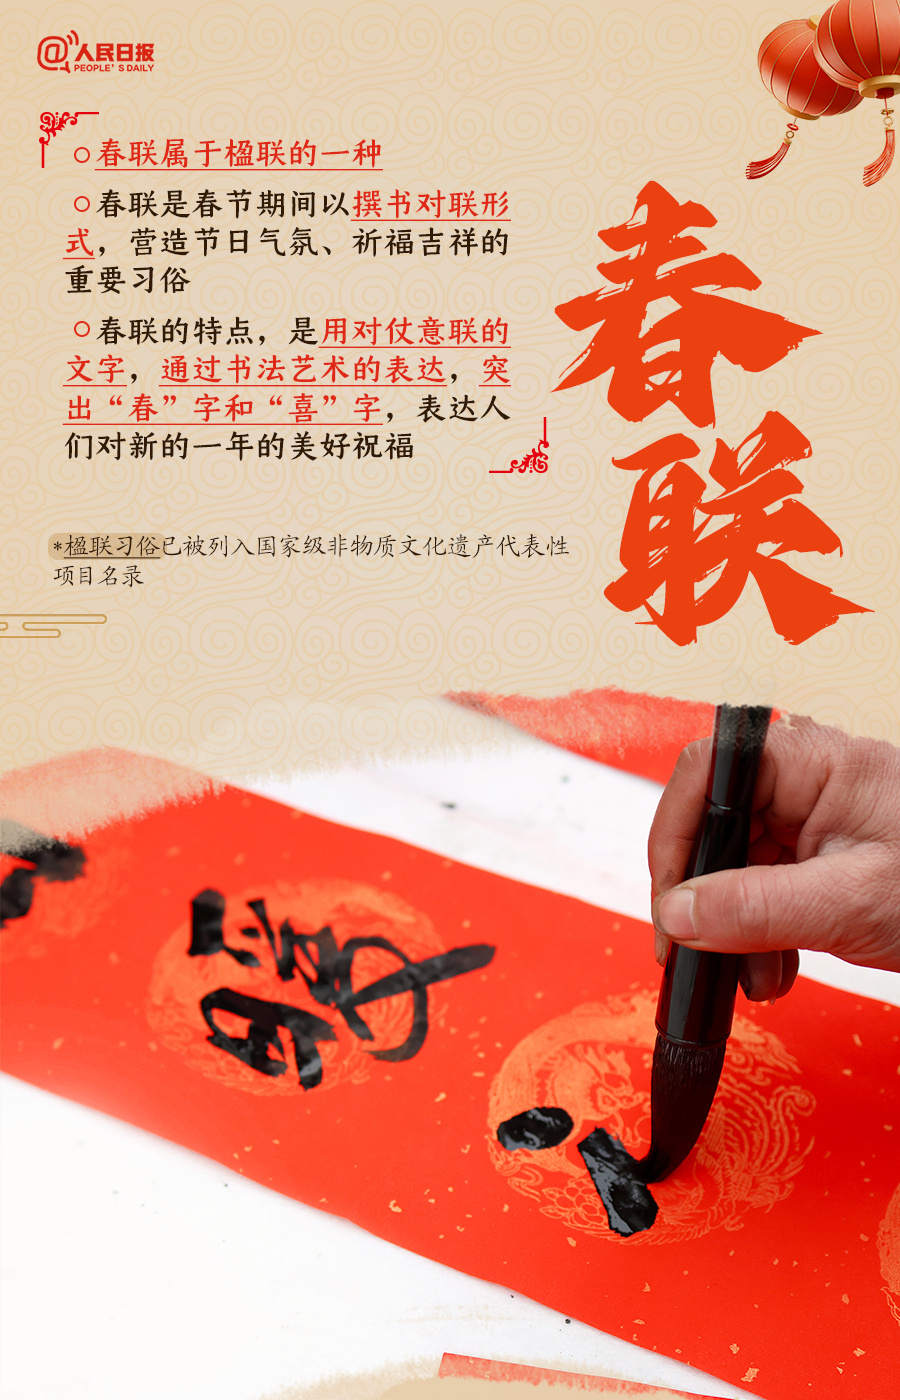 人民日报
PEOPLE'S DAILY
春联属于楹联的一种
春联是春节期间以撰书对联形
式，营造节日气氛、祈福吉祥的
重要习俗
春联的特点，是用对仗意联的
文字，通过书法艺术的表达，突
出“春”字和“喜”字，表达人
们对新的一年的美好祝福
春
联
*楹联习俗已被列入国家级非物质文化遗产代表性
项目名录